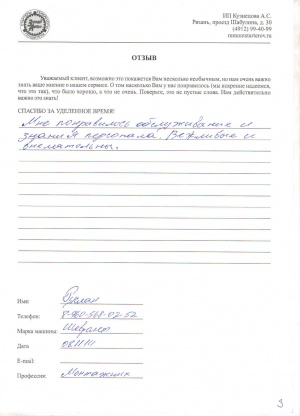 ИП Кузнецова А.С.
Рязань, проезд Шабулина, д. 30
(4912) 99-40-99
ОТЗЫВ
Уважаемый клиент, возможно это покажется Вам несколько необычным, но нам очень важно
знать ваше мнение о нашем сервисе. О том насколько Вам у нас понравилось (мы искренне надеемся,
что это так), что было хорошо, а что не очень. Поверьте, это не пустые слова. Нам действительно
важно это знать!
СПАСИБО ЗА УДЕЛЕННОЕ ВРЕМЯ!
Мне понравилось обслуживание и
знания персонала. Вежливые и
внимательны.
Имя: Руслан
Телефон: 8-960-568-02-52
Марка машины: Шевроле
Дата 08.11.11
E-mail:
Профессия: Монтажник
3